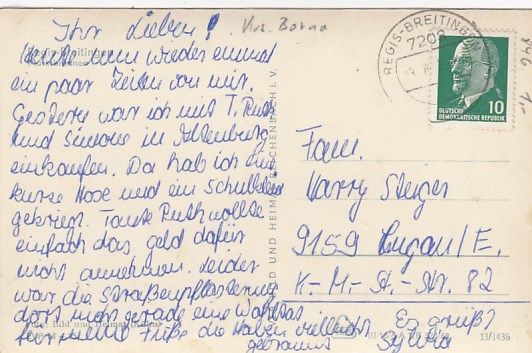 Ihr Lieben!
Krs. Borna
Regis-Breitingen
Heute nun wieder einmal
ein paar Zeilen von mir.
Gestern war ich mit T. Ruth
und Simone in Altenburg
einkaufen. Da hab ich eine
kurze Hose und ein
gekriegt. Tante Ruth wollte
einfach das Geld dafür
nicht annehmen. Leider
war die Straßenpflasterung
dort nicht gerade eine Wohltat
für meine Füße die haben vielleicht
gebrannt
Es grüßt
Sylvia
REGIS-BREITING
7208
10
DEUTSCHE
DEMOKRATISCHE REPUBLIK
Fam.
Harry Steiger
9159 Lugau/E.
K.-M.-St.-Str. 82
BILD UND HEIMAT REICHENBACH I. V.
13/1436